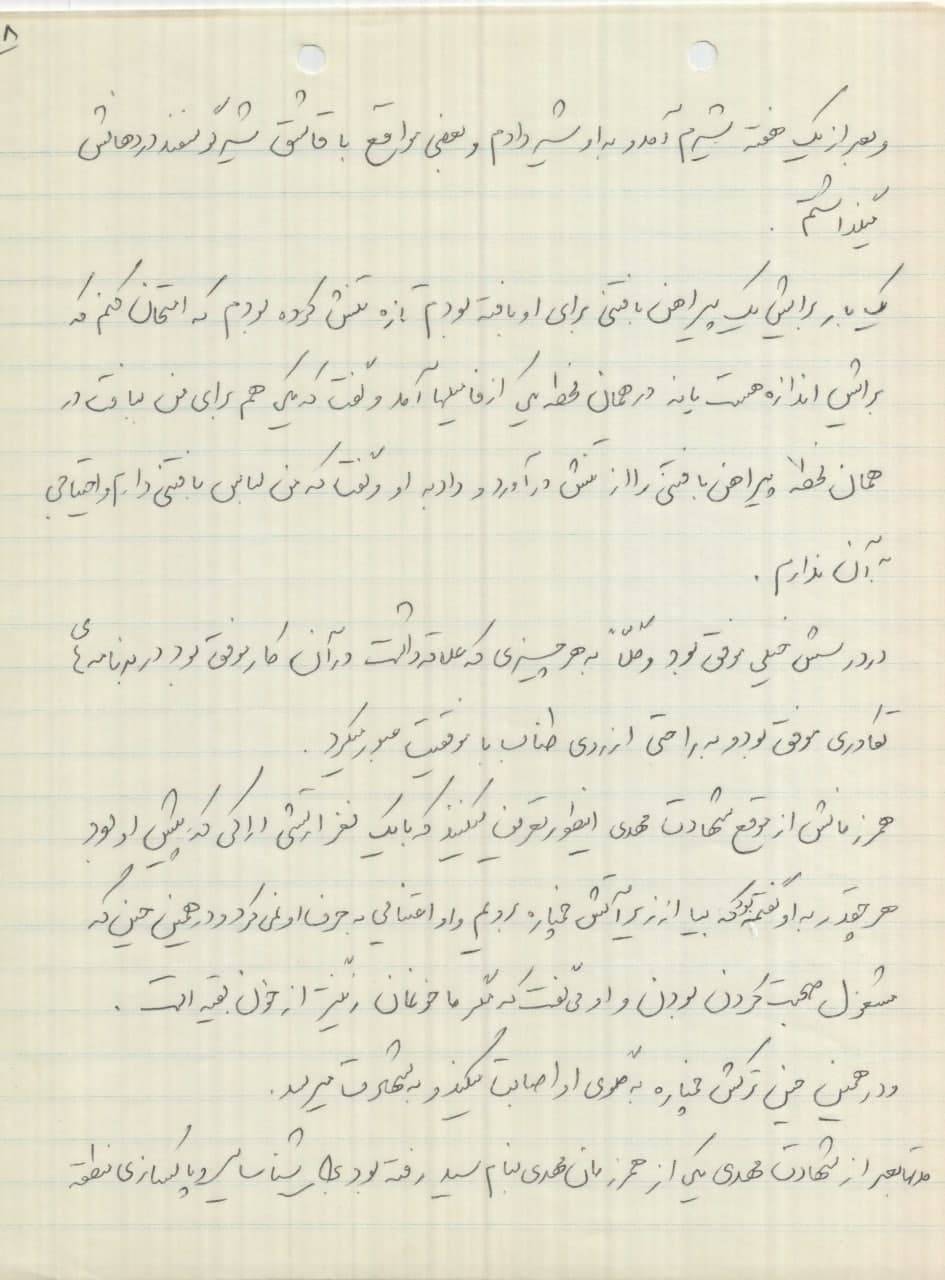 ۸
و بعد از یک هفته شیرم آمد و به او شیر دادم و بعضی مواقع با قاشق شیر گوسفند در دهانش
میگذاشتم .
یک بار برایش یک پیراهن بافتنی برای او بافته بودم تازه تنش کرده بودم که امتحان کنم که
برایش اندازه هست یا نه در همان لحظه یکی از فامیلها آمد و گفت که یکی هم برای من بباف در
همان لحظه پیراهن بافتنی را از تنش درآورد و داد به او و گفت که من لباس بافتنی دارم و احتیاجی
به آن ندارم .
در درسش خیلی موفق بود و کلاً به هر چیزی که علاقه داشت در آن کار موفق بود در برنامه های
تکاوری موفق بود و به راحتی از روی طناب با موفقیت عبور میکرد .
همرزمانش از موقع شهادت مهدی اینطور تعریف میکنند که با یک نفر ارتشی اراکی که پیش او بود
هر چقدر به او گفته بود که بیا از زیر آتش خمپاره برویم و او اعتنایی به حرف او نمی کرد و در همین حین که
مشغول صحبت کردن بودن و او می گفت که مگر ما خونمان رنگین تر از خون بقیه است .
و در همین حین ترکش خمپاره به گلوی او اصابت میکند و به شهادت میرسد .
مدتها بعد از شهادت مهدی یکی از همرزمان مهدی بنام سید رفته بود برای شناسایی و پاکسازی منطقه